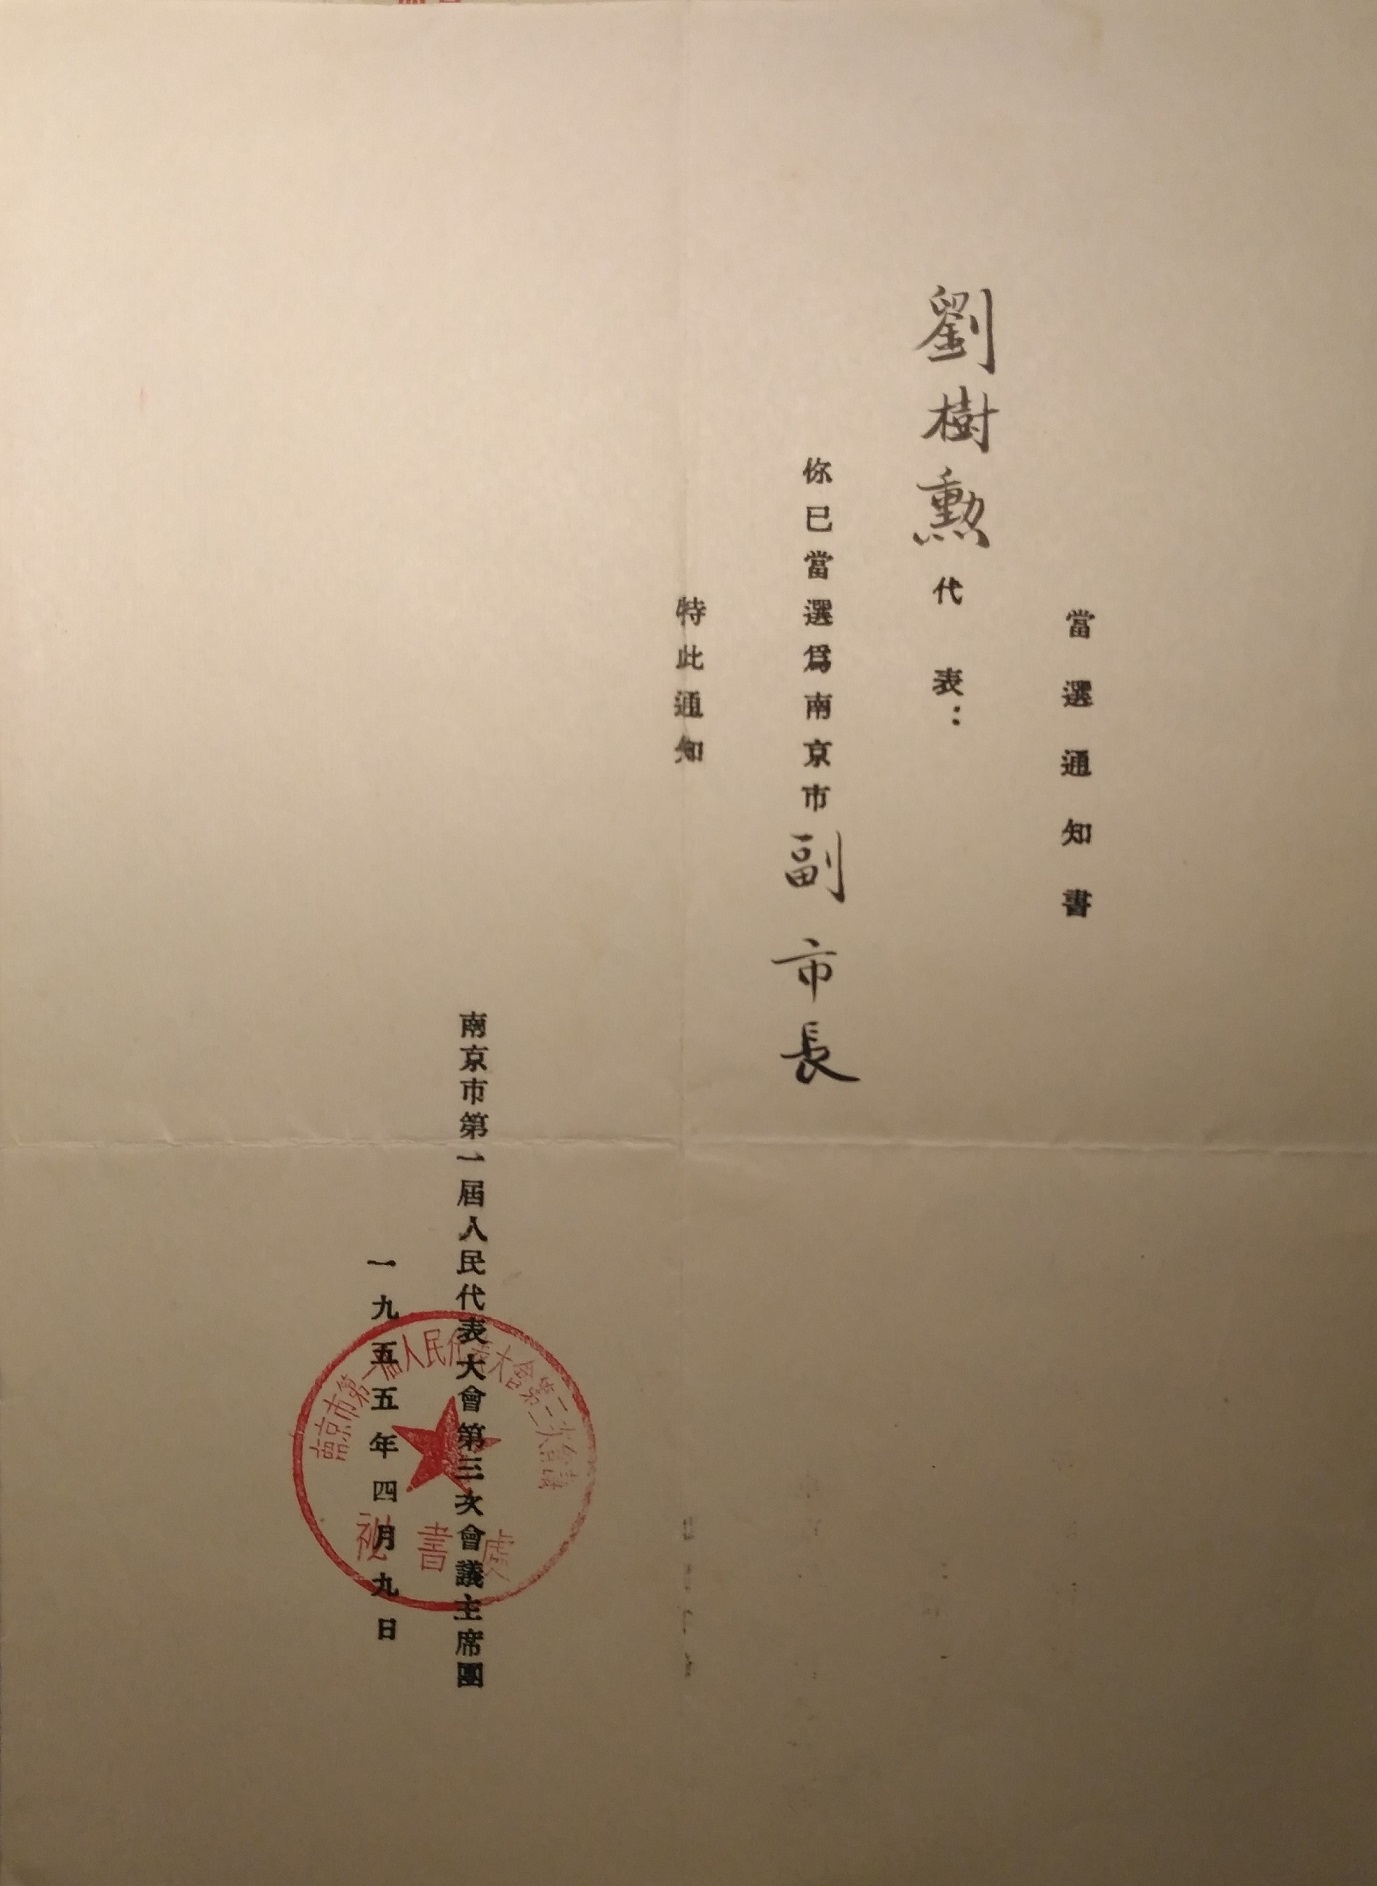 當選通知書
劉樹勳代表：
你已當選爲南京市副市長
特此通知
南京市第一屆人民代表大會第三次會議主席團
一九五五年四月九日
南京市第一屆人民代表大會第三次會議
祕書處